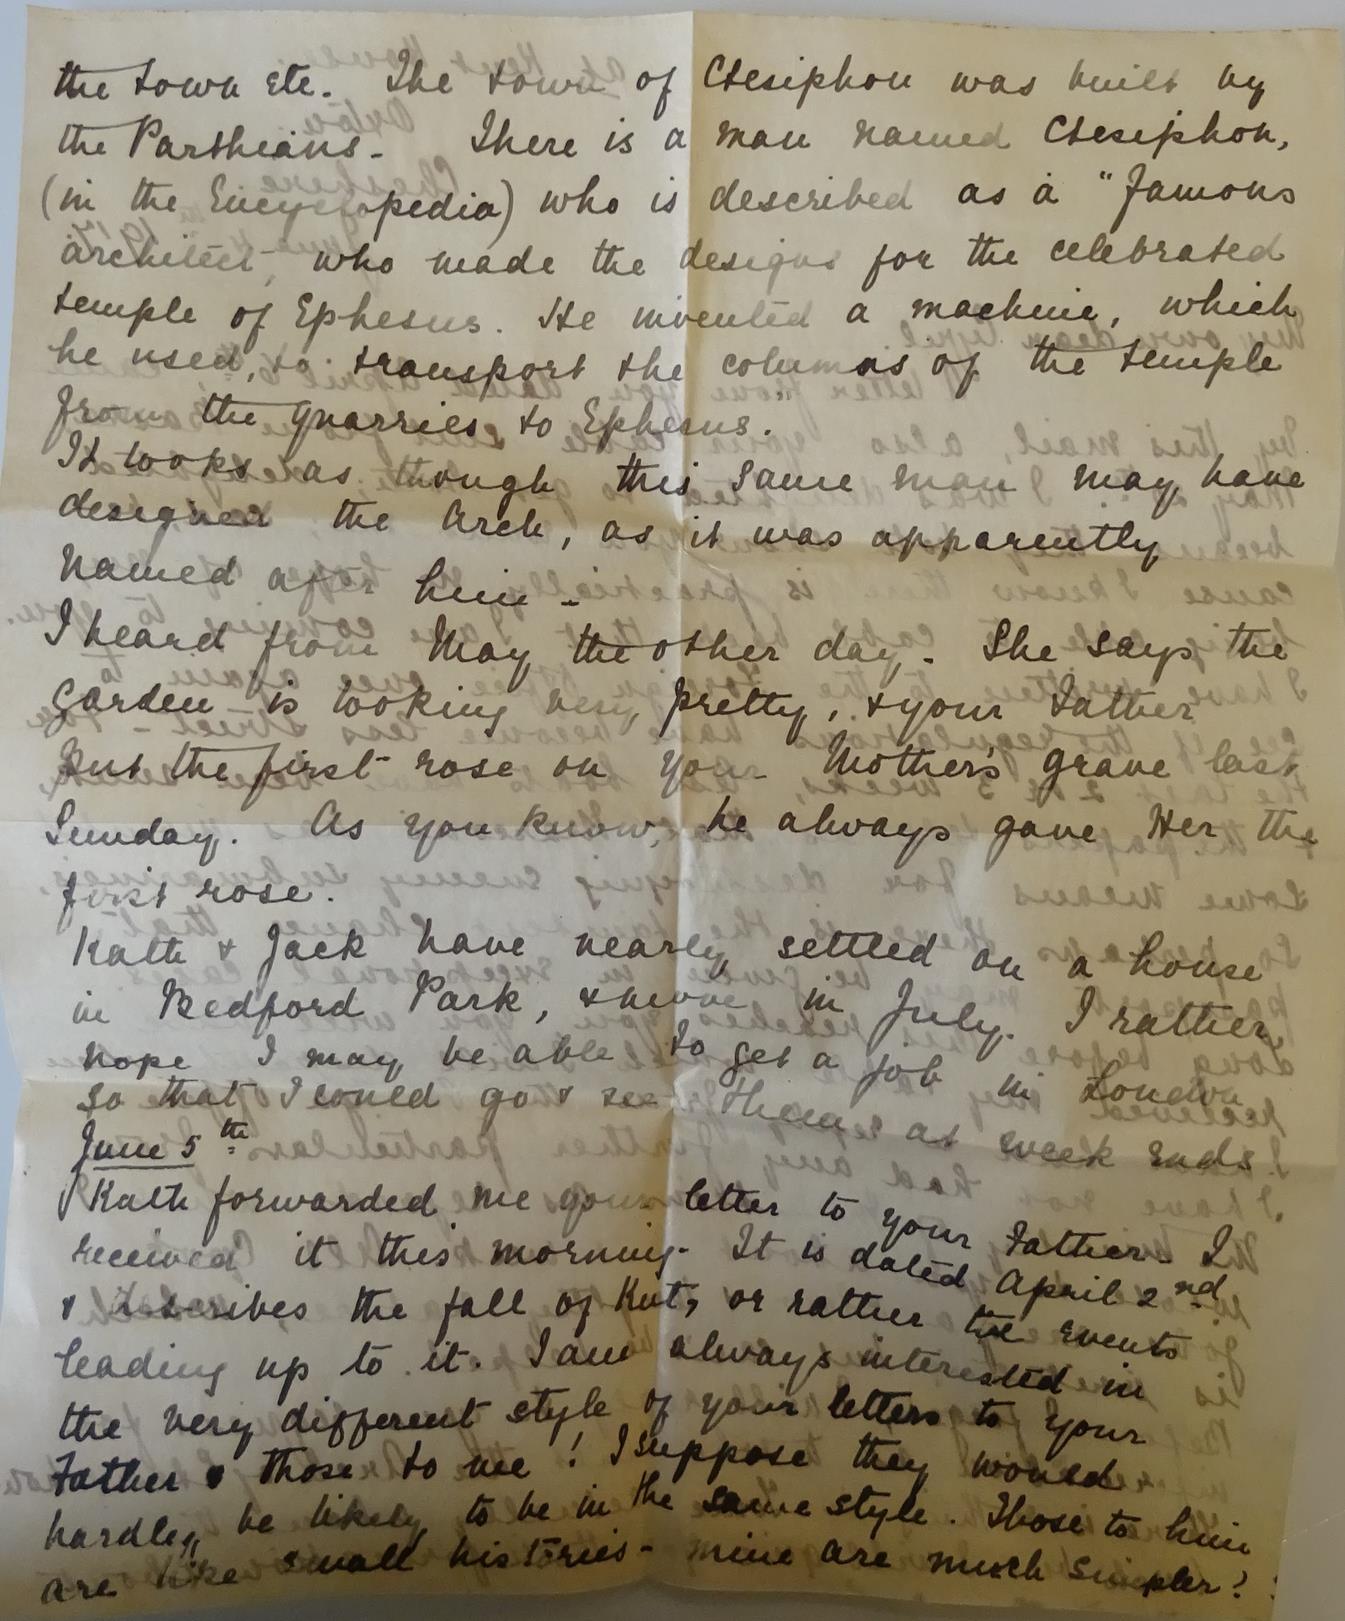 the town etc. The town of Ctesiphon was built by
the Parthians. There is a man named Ctesiphon,
(in the Encyclopedia) who is described as a "famous
architect, who made the designs for the celebrated
temple of Ephesus. He invented a machine, which
he used, to transport the columns of the temple
from the quarries to Ephesus."
It looks as though this same man may have
designed the Arch, as it was apparently
named after him -
I heard from May the other day. She says the
garden is looking very pretty, & your Father
put the first rose on your Mother's grave last
Sunday. As you know, he always gave Her the
first rose.
Kath & Jack have nearly settled on a house
in Bedford Park, & move in July. I rather
hope I may be able to get a job in London
so that I could go & see them at week ends.
June 5th
Kath forwarded me your letter to your Father. I
received it this morning. It is dated April 2nd
& describes the fall of Kut, or rather the events
leading up to it. I am always interested in
the very different style of your letters to your
Father & those to me! I suppose they would
hardly be likely to be in the same style. Those to him
are like small histories - mine are much simpler!